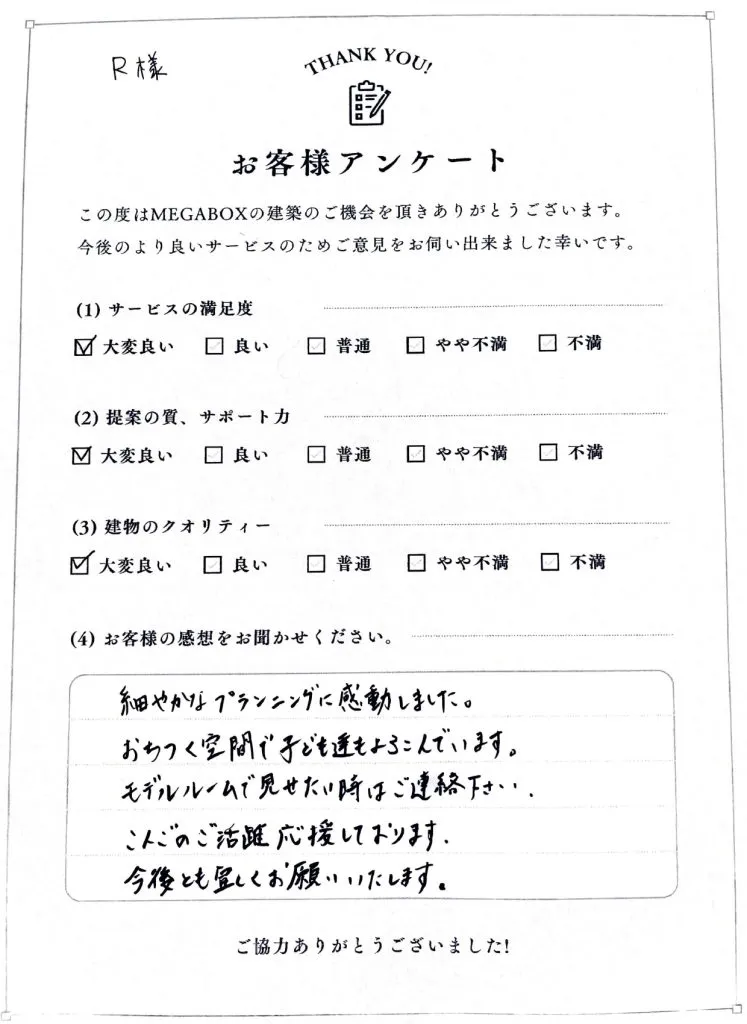 R様
THANK YOU!
お客様アンケート
この度はMEGABOXの建築のご機会を頂きありがとうございます。
今後のより良いサービスのためご意見をお伺い出来ました幸いです。
(1) サービスの満足度
☑ 大変良い ☐ 良い ☐ 普通 ☐ やや不満 ☐ 不満
(2) 提案の質、サポート力
☑ 大変良い ☐ 良い ☐ 普通 ☐ やや不満 ☐ 不満
(3) 建物のクオリティー
☑ 大変良い ☐ 良い ☐ 普通 ☐ やや不満 ☐ 不満
(4) お客様の感想をお聞かせください。
細やかなプランニングに感動しました。
おちつく空間で子ども達もよろこんでいます。
モデルルームで見せたい時はご連絡下さい.
こんごのご活躍応援しております.
今後とも宜しくお願いいたします。
ご協力ありがとうございました!